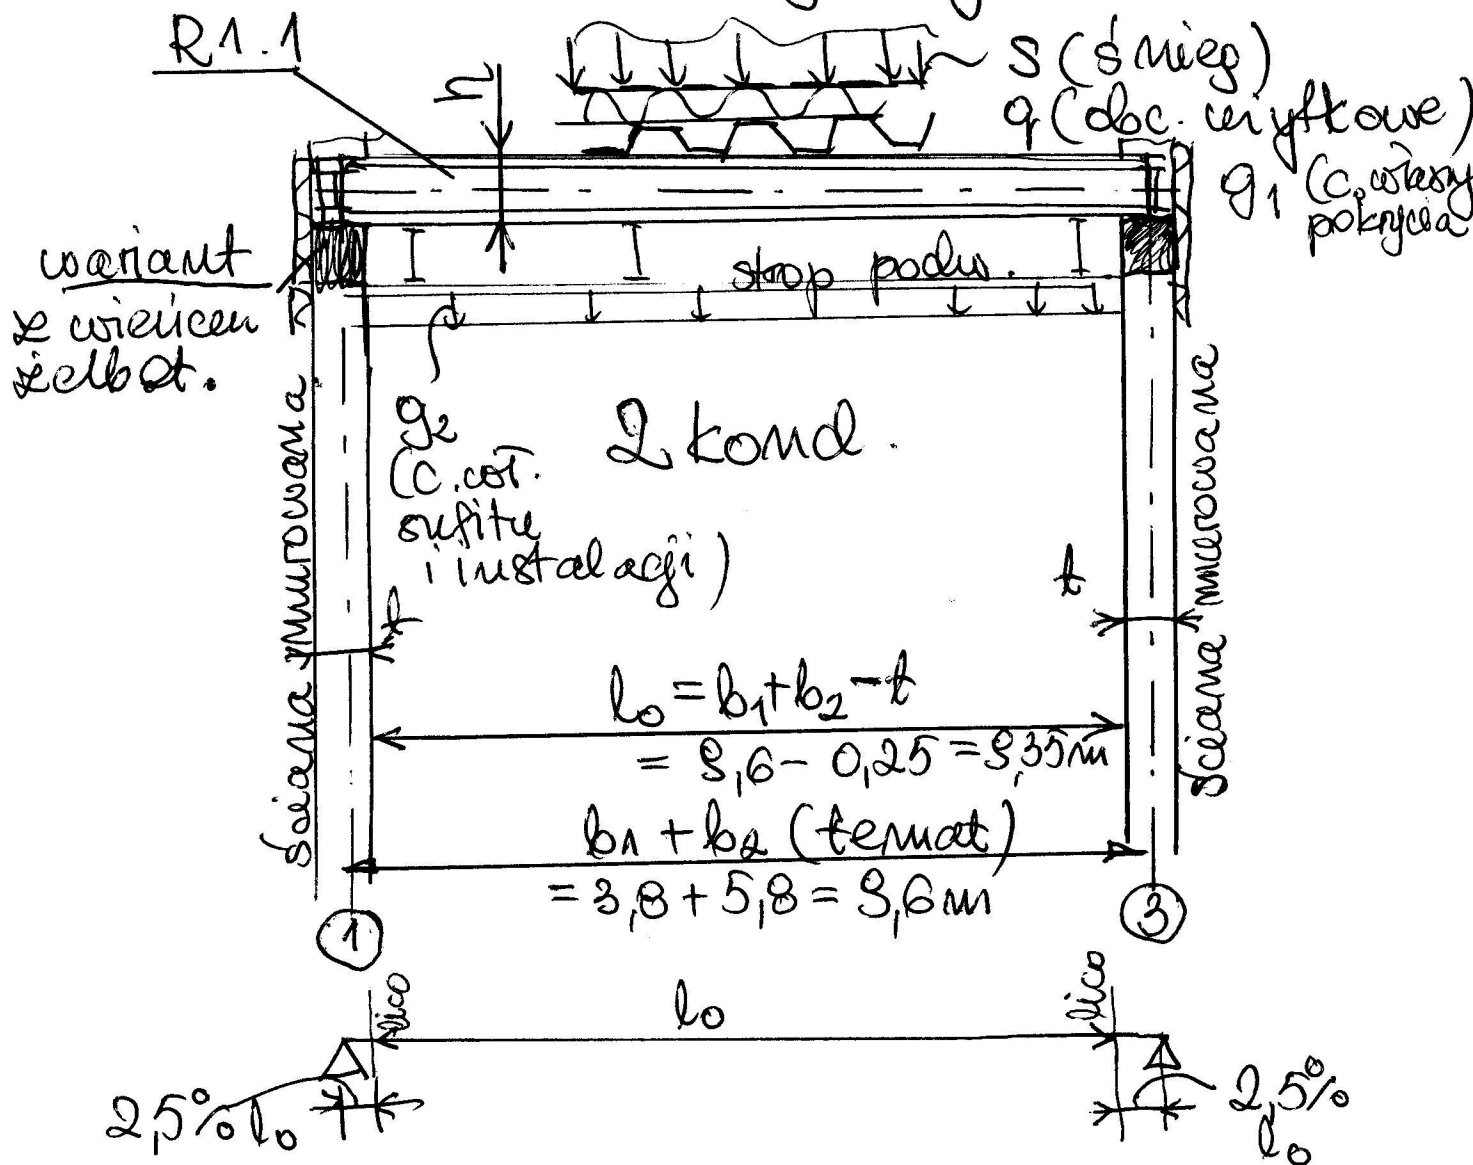 R1.1
h
s (śnieg)
q (obc. użytkowe)
g₁ (c. własny
pokrycia
wariant
z wieńcem
żelbet.
strop podw.
g₂
(c. wł.
sufitu
i instalacji)
2 kond.
ściana murowana
ściana murowana
t
t
l₀ = b₁ + b₂ - t
= 9,6 - 0,25 = 9,35 m
b₁ + b₂ (temat)
= 3,8 + 5,8 = 9,6 m
1
3
lico
l₀
lico
2,5% l₀
2,5%
l₀